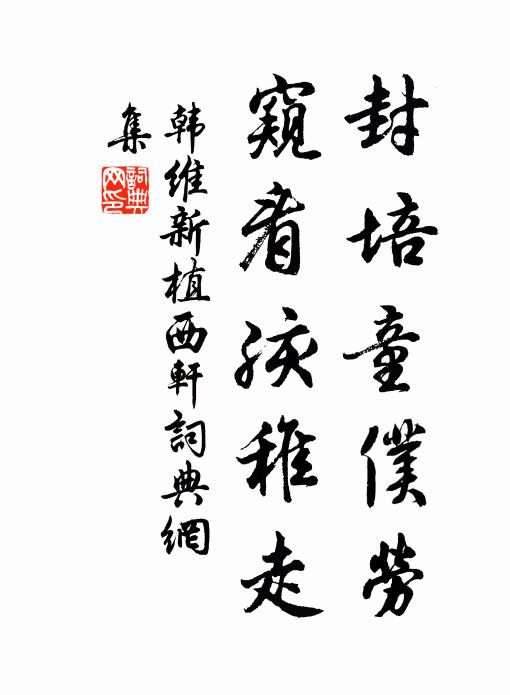 封培童僕勞
窺看孩稚走
韩维新植西軒詞典網
集
詞典
网印